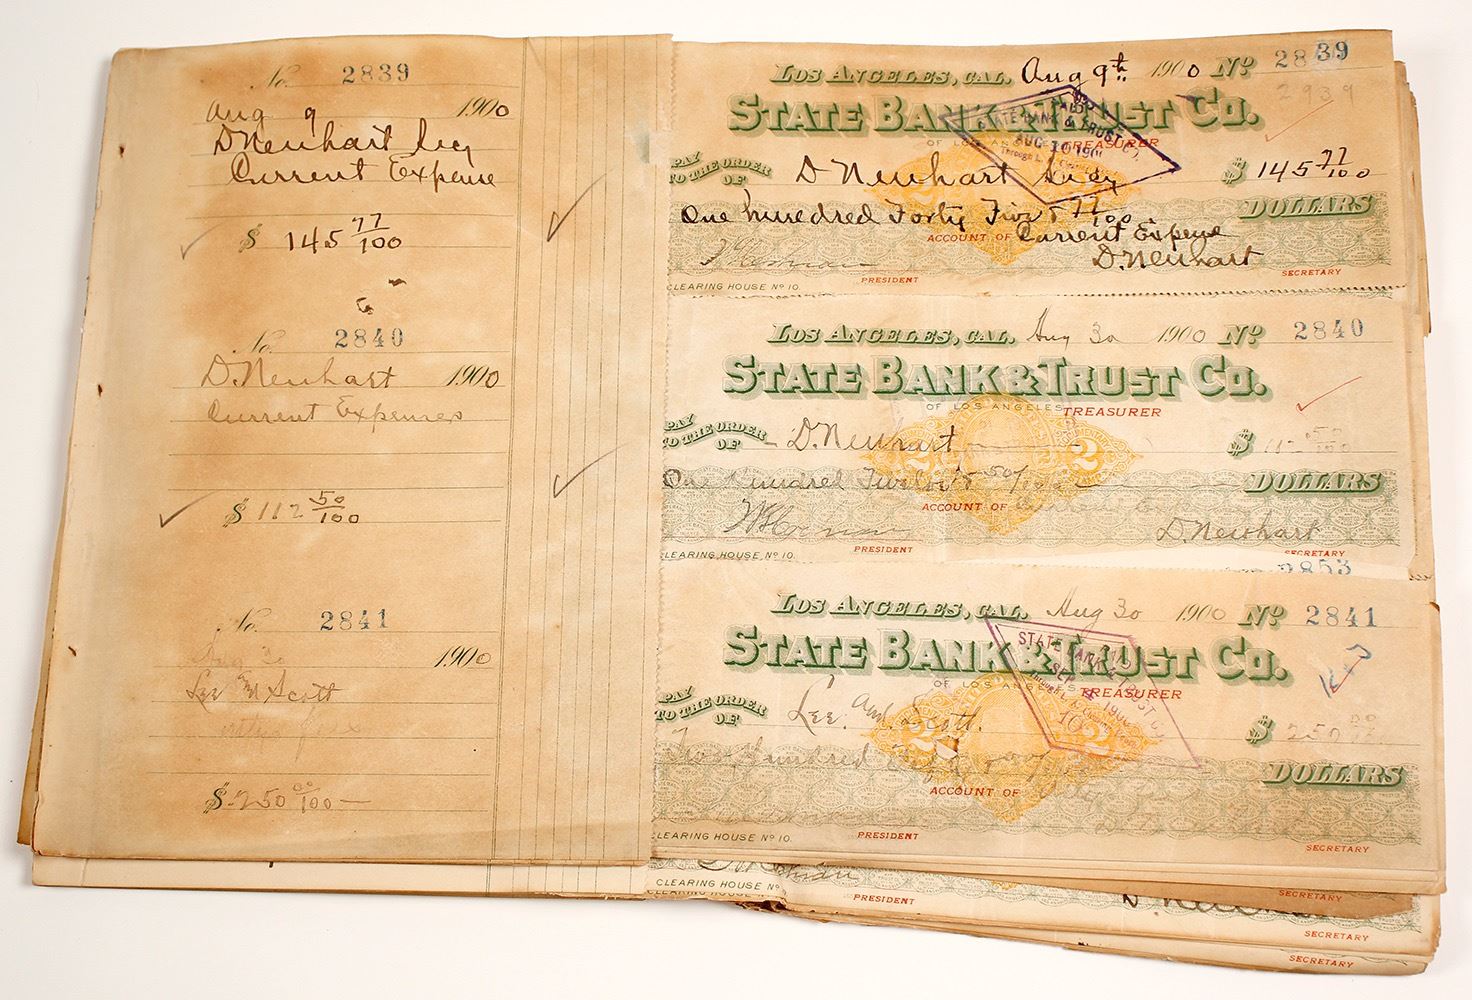 No. 2839
Aug 9 1900
D Neuhart Secy
Current Expense
$ 145 77/100
No. 2840
D. Neuhart 1900
Current Expenses
$ 112 50/100
No. 2841
Aug 30 1900
Lee and Scott
$ 250 00/100
LOS ANGELES, CAL. Aug 9th 1900 No 2839
2939
STATE BANK & TRUST CO.
OF LOS ANGELES TREASURER
STATE BANK & TRUST CO.
AUG 10 1900
PAY TO THE ORDER OF D Neuhart Secy $ 145 77/100
One hundred Forty Five & 77/100 DOLLARS
ACCOUNT OF Current Expense
D. Neuhart
PRESIDENT SECRETARY
CLEARING HOUSE No 10.
LOS ANGELES, CAL. Aug 30 1900 No 2840
STATE BANK & TRUST CO.
OF LOS ANGELES TREASURER
PAY TO THE ORDER OF D. Neuhart $ 112 50/100
2 2
One Hundred Twelve & 50/100 DOLLARS
ACCOUNT OF
D. Neuhart
PRESIDENT SECRETARY
CLEARING HOUSE No 10.
2853
LOS ANGELES, CAL. Aug 30 1900 No 2841
STATE BANK & TRUST CO.
OF LOS ANGELES TREASURER
STATE BANK & TRUST CO.
SEP 1900
PAY TO THE ORDER OF Lee and Scott. $ 250 00
2 2
Two Hundred Fifty DOLLARS
ACCOUNT OF
PRESIDENT SECRETARY
CLEARING HOUSE No 10.
CLEARING HOUSE No
PRESIDENT SECRETARY
SECRETARY
SECRETARY